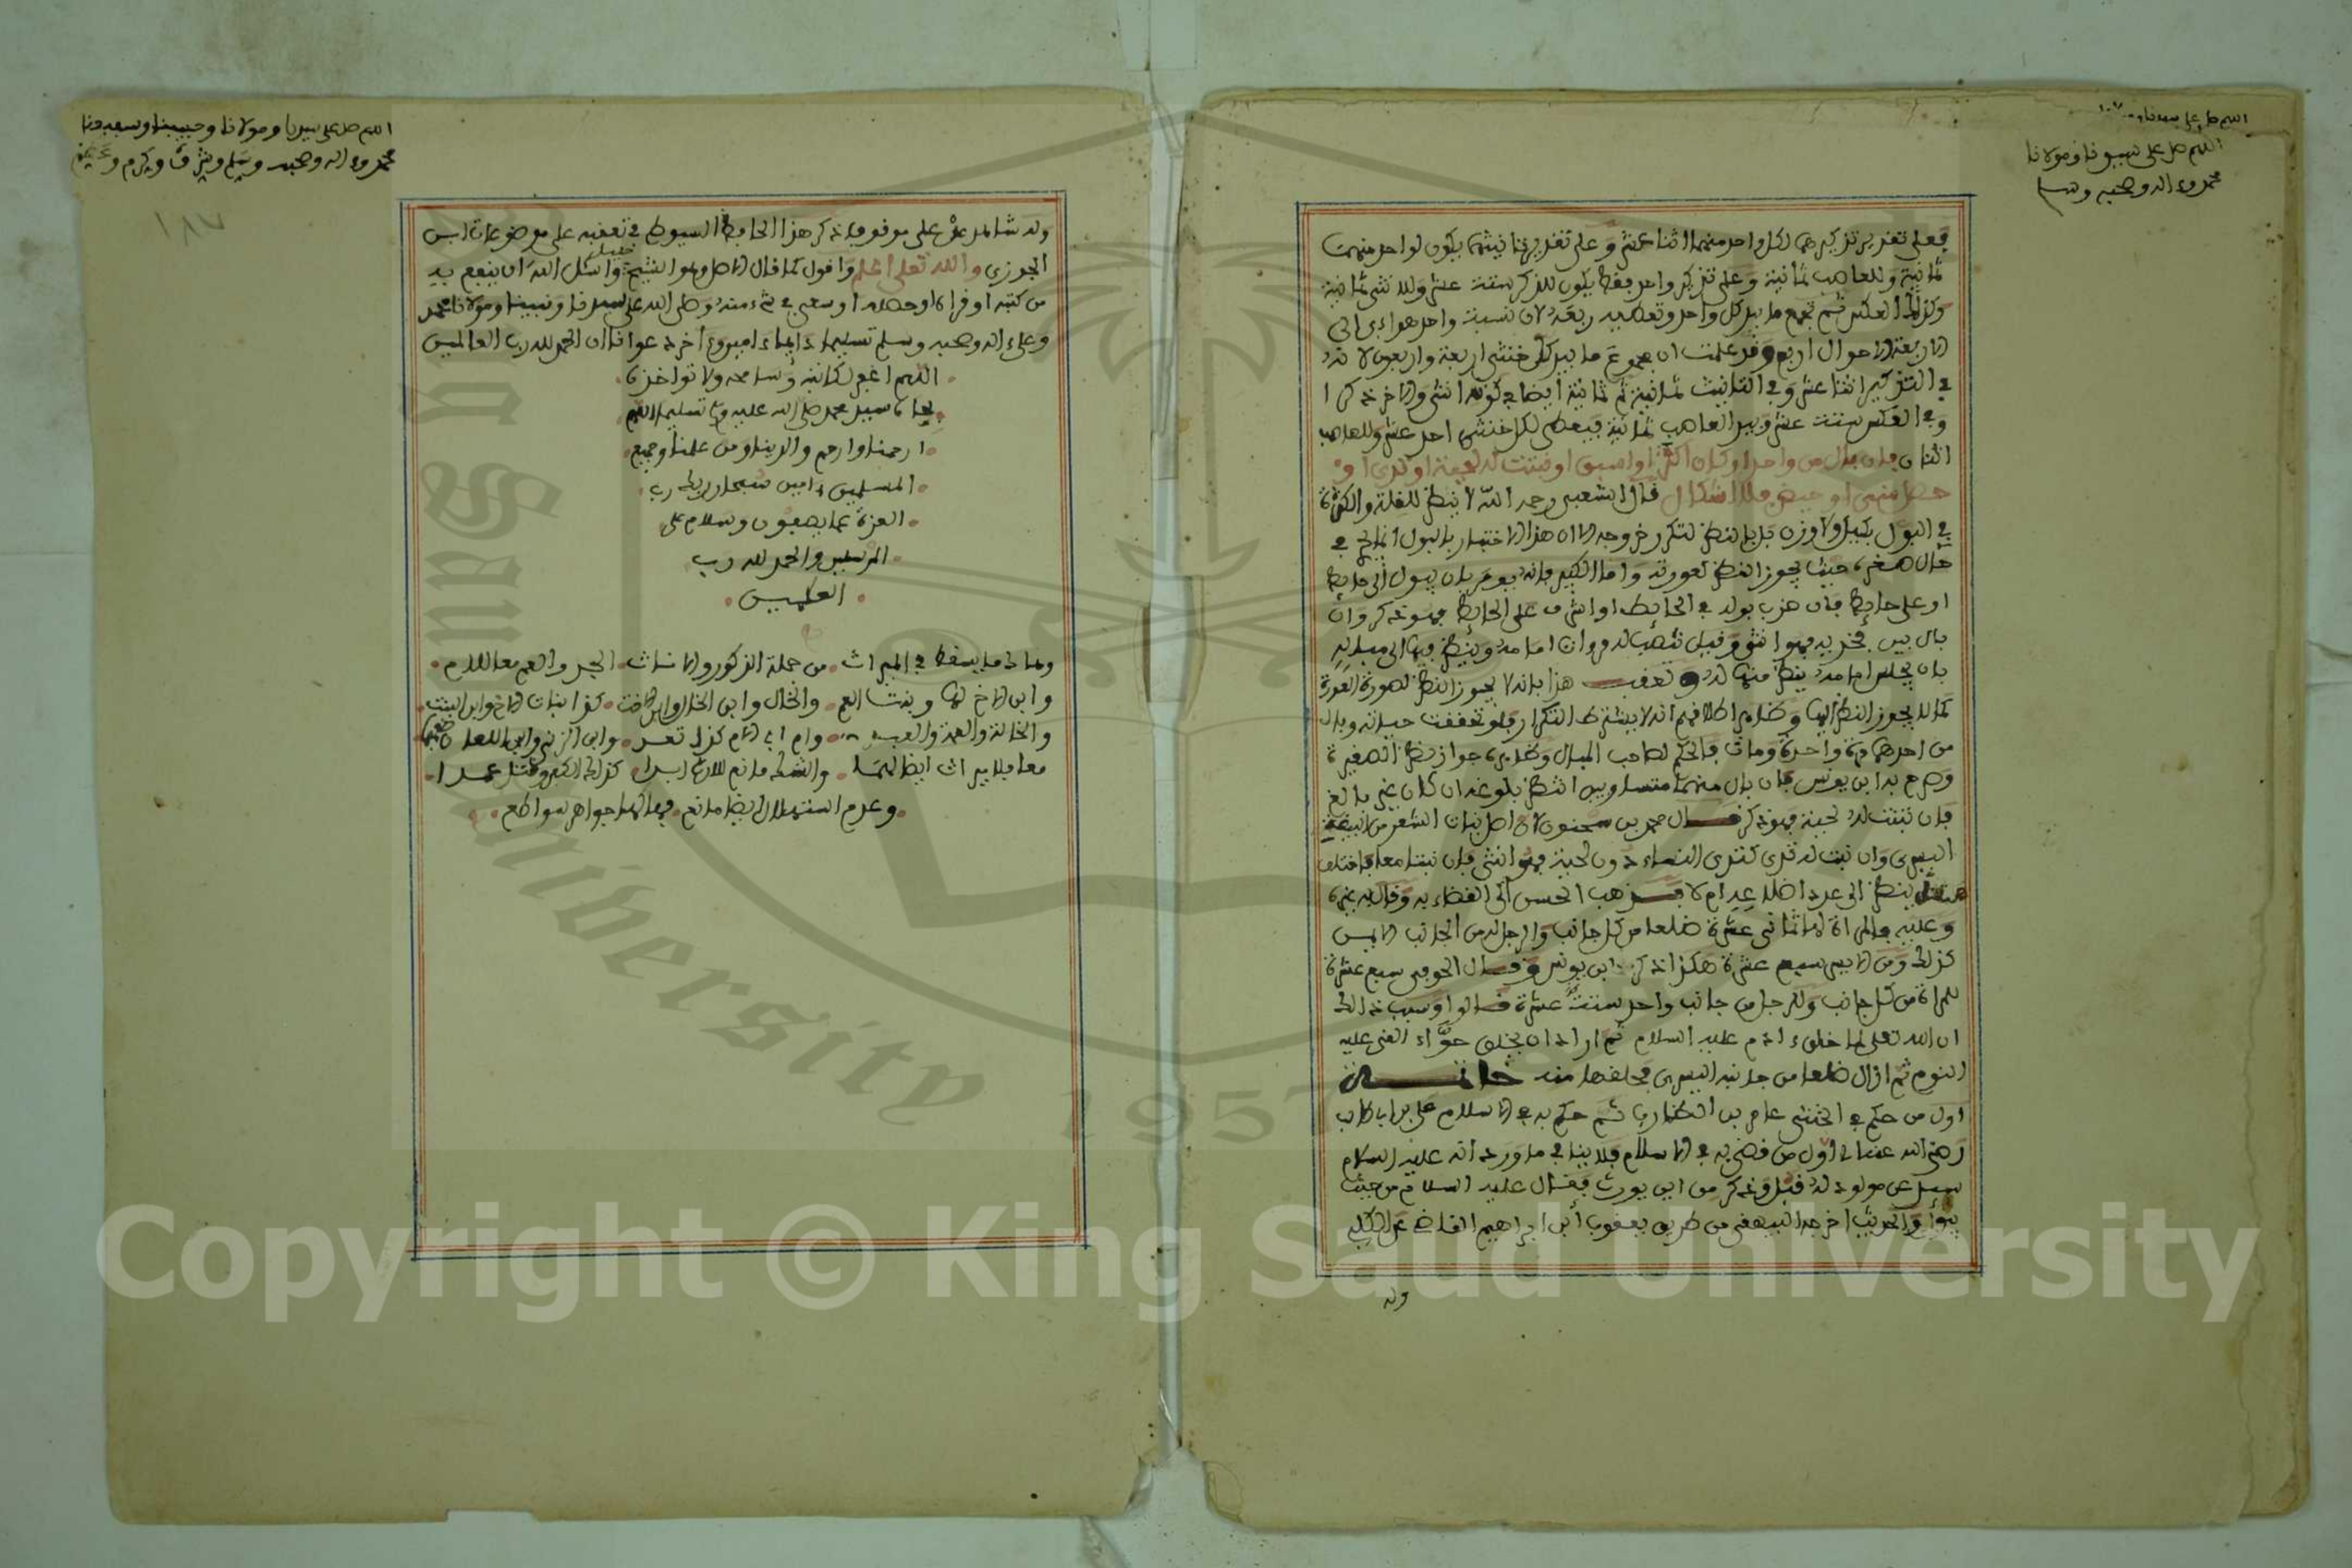 اللهم صل على سيدنا
اللهم صل على سيدنا ومولانا
محمد وءاله وصحبه وسلم
فعلى تقدير تذكيرهما لكل واحد منهما اثنا عشر وعلى تقدير تانيثهما يكون لواحد منهما
ثمانية وللعاصب ثمانية وعلى تذكير واحد فقط يكون للذكر ستة عشر وللانثى ثمانية
وكذلك العكس ثم تجمع ما بيد كل واحد وتعطيه ربعه لان نسبة واحد هوائي الى
الاربعة الاحوال اربع وقد علمت ان مجموع ما بيد كل خنثى اربعة واربعون لانه
في التذكير اثنا عشر وفي التانيث ثمانية ثم ثمانية ايضا في كونه انثى والاخر ذكرا
وفي العكس ستة عشر وبيد العاصب ثمانية فيعطى لكل خنثى احد عشر وللعاصب
اثنان فان بال من واحد او كان اكثر او اسبق او نبتت له لحية او ثدي او
حصل مني او حيض فلا اشكال قال الشعبي رحمه الله لا ينظر للقلة والكثرة
في البول بكيل ولا وزن بل بالنظر لتكرر خروجه الا ان هذا الاختبار بالبول انما يكون في
حال صغره حيث يجوز النظر لعورته واما الكبير فانه يومر بان يبول الى حايط
او على حايط فان ضرب بوله في الحايط او اشرف على الحايط فهو ذكر وان
بال بين فخذيه فهو انثى وقيل تنصب له مرءاة امامه وينظر فيها الى مباله
بان يجلس امامه ينظر منها له وتعقب هذا بانه لا يجوز النظر لصورة العورة
كما لا يجوز النظر اليها وظاهر اطلاقهم انه لا يشترط التكرار فلو تحققت حياته وبال
من احدهما مرة واحدة ومات فالحكم لصاحب المبال وظاهره جواز نظر الصغيرة
وصرح به ابن يونس فان بال منهما متساويين انتظر بلوغه ان كان غير بالغ
فان نبتت له لحية فهو ذكر قال محمد بن سحنون لان اصل نبات الشعر من البيضة
اليسرى وان نبت له ثدي كثدي النساء دون لحية فهو انثى فان نبتا معا فاختلف
هل ينظر الى عدد اضلاعه ام لا فذهب الحسن الى القضاء به وقال به غيره
وعليه فالمراة لها ثماني عشرة ضلعا من كل جانب والرجل له من الجانب الايمن
كذلك ومن الايسر سبع عشرة هكذا ذكره ابن يونس وقال الحوفي سبع عشرة
للمراة من كل جانب وللرجل من جانب واحد ستة عشرة قالوا وسبب ذلك
ان الله تعلى لما خلق ءادم عليه السلام ثم اراد ان يخلق حواء القى عليه
النوم ثم ازال ضلعا من جانبه اليسرى فخلقها منه خاتمة
اول من حكم في الخنثى عامر بن الظرب ثم حكم به في الاسلام علي بن ابي طالب
رضي الله عنه اي اول من قضى به في الاسلام فلا ينافي ما ورد انه عليه السلام
سيل عن مولود له قبل وذكر من اين يورث فقال عليه السلام من حيث
يبول والحديث اخرجه البيهقي من طريق يعقوب ابن ابراهيم القاضي عن الكلبي
وله
اللهم صل على سيدنا ومولانا وحبيبنا وسعدنا
محمد وءاله وصحبه وسلم وشرف وكرم وعظم
١٨٧
وله شاهد عن علي موقوف ذكر هذا الحافظ السيوطي في تعقبه على موضوعات ابن
الجوزي والله تعلى اعلم واقول كما قال الاصل وهو الشيخ خليل واسئل الله ان ينفع به
من كتبه او قراه او حصله او سعى في شيء منه وصلى الله على سيدنا ونبينا ومولانا محمد
وعلى ءاله وصحبه وسلم تسليما دايما ءامين وءاخر دعوانا ان الحمد لله رب العالمين
اللهم اغفر لكاتبه وسامحه ولا تواخذه
بجاه سيدنا محمد صلى الله عليه وسلم تسليما اللهم
ارحمنا وارحم والدينا ومن علمنا وجميع
المسلمين ءامين سبحان ربك رب
العزة عما يصفون وسلام على
المرسلين والحمد لله رب
العلمين
وهاك ما يسقط في الميراث من جملة الذكور والاناث الجد والعم معا للام
وابن الاخ لها وبنت العم والخال وابن الخال وابن الاخت كذا بنات الاخ وابن البنت
والخالة والعمة والعبيد وام اب الام كذا تعد وابن الزنى وابن اللعان
معا فلا ميراث ايضا لهما والشك مانع للارث ابدا كذلك الكفر وقتل عمدا
وعدم استهلال ايضا مانع فهاكها جواهر سواطع
Copyright © King Saud University
1957